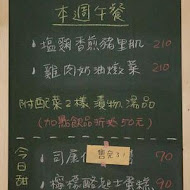 本週午餐
塩麴香煎豬里肌 210
雞肉奶油燉菜 210
附配菜2樣 漬物 湯品
(加點飲品折抵50元)
今日甜
司康 售完 70
檸檬 起士蛋糕 90